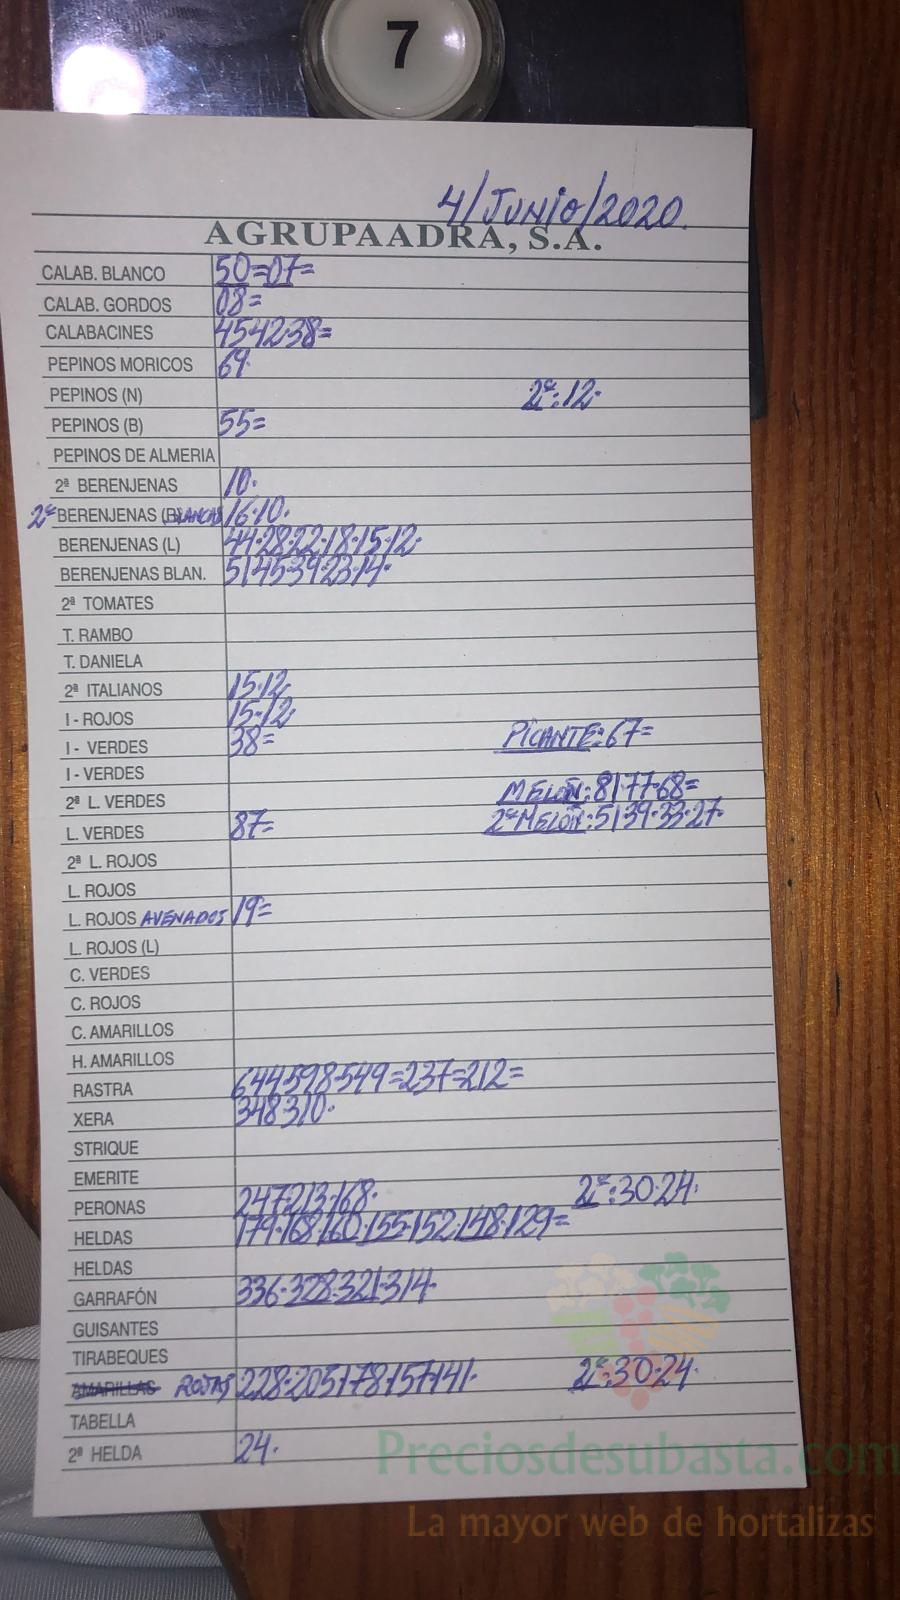 7
4/JUNIO/2020.
AGRUPAADRA, S.A.
CALAB. BLANCO 50=07=
CALAB. GORDOS 08=
CALABACINES 45·42·38=
PEPINOS MORICOS 69·
PEPINOS (N) 2ª:12·
PEPINOS (B) 55=
PEPINOS DE ALMERIA
2ª BERENJENAS 10·
2ª BERENJENAS (BLANCAS 16·10·
BERENJENAS (L) 44·28·22·18·15·12·
BERENJENAS BLAN. 51·45·39·23·14·
2ª TOMATES
T. RAMBO
T. DANIELA
2ª ITALIANOS 15·12·
I - ROJOS 15·12·
I - VERDES 38= PICANTE:67=
I - VERDES
2ª L. VERDES MELON:81·77·68=
L. VERDES 87= 2ªMELON:51·39·33·27·
2ª L. ROJOS
L. ROJOS
L. ROJOS AVENADOS 19=
L. ROJOS (L)
C. VERDES
C. ROJOS
C. AMARILLOS
H. AMARILLOS
RASTRA 644·598·549=237=212=
XERA 348·310·
STRIQUE
EMERITE
PERONAS 247·213·168· 2ª:30·24·
HELDAS 179·168·160·155·152·148·129=
HELDAS
GARRAFÓN 336·328·321·314·
GUISANTES
TIRABEQUES
AMARILLAS ROJAS 228·205·178·157·141· 2ª:30·24·
TABELLA
2ª HELDA 24·
Preciosdesubasta.com
La mayor web de hortalizas